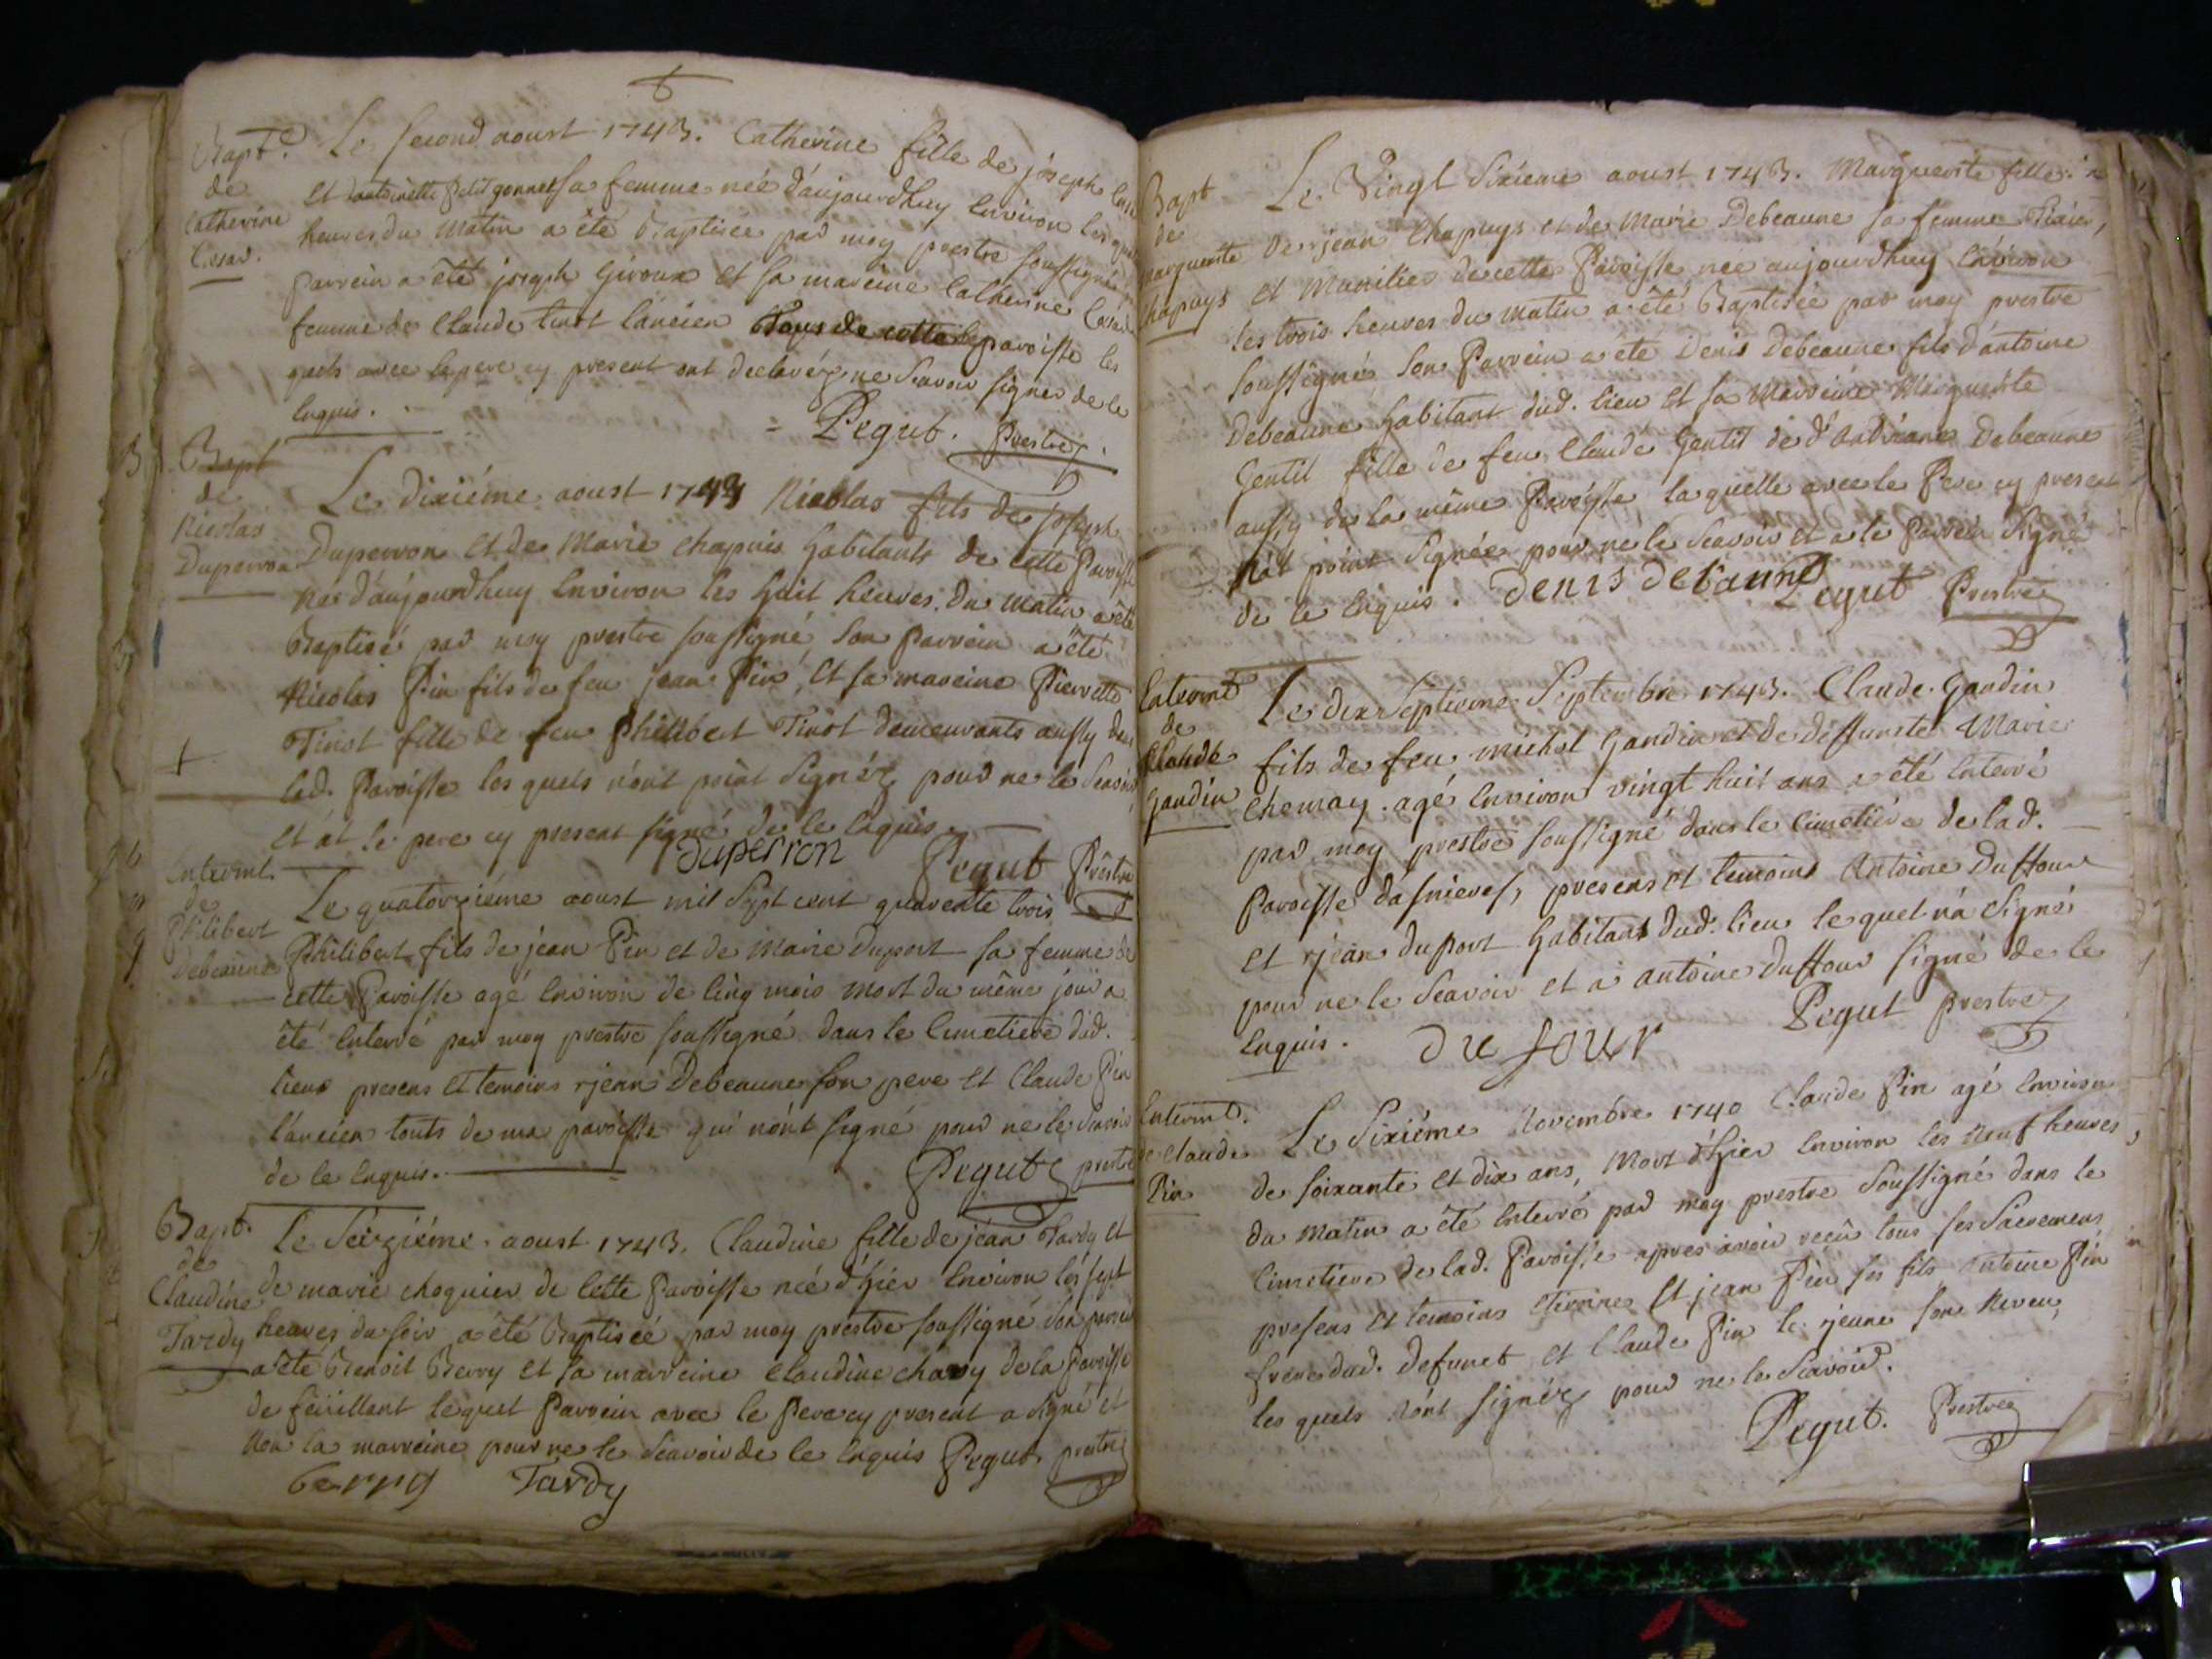 Bapt.
de
Catherine
Cesar.
Le second aoust 1743. Catherine fille de joseph
Et dantoinette petit gonnet sa femme née d'aujourdhuy Environ les
heures du Matin a êté Baptisée par moy prestre soussigné,
parrein a êté joseph Giroux Et sa mareine Catherine Cesar
femme de Claude tinot l'ancien paroisse les
quels avec le pere cy present ont declaréz ne Scavoir signer de ce
Enquis.
Pegut. Prestre
Bapt
de
Nicolas
Duperron
Le dixiéme aoust 1743 Nicolas fils de joseph
Duperron Et de Marie chapuis habitants de cette Paroisse
né d'aujourdhuy Environ les huit heures du matin a êté
Baptisé par moy prestre soussigné, son Parrein a êté
Nicolas Pin fils de feu jean Pin, Et sa mareine Pierrette
Tinot fille de feu Philibert Tinot demeurants aussy dans
lad. Paroisse les quels n'ont point Signéz pour ne le Scavoir
et at le pere cy present signé de ce Enquis.
duperron Pegut Prêstre
Enterrmt.
de
Philibert
Debeaune
Le quatorziéme aoust mil Sept cent quarente trois
Philibert fils de jean Pin et de Marie Duport sa femme de
cette Paroisse agé Environ de Cinq mois mort du même jour a
êté Enterré par moy prestre soussigné dans le Cimetiere dud.
lieux presens Et temoins jean Debeaune son pere Et Claude Pin
l'ancien touts de ma paroisse qui n'ont signé pour ne le Scavoir
de ce Enquis.
Pegut prestre
Bapt.
de
Claudine
Tardy
Le Seiziéme aoust 1743. Claudine fille de jean Tardy et
de marie choguier de cette Paroisse née d'hier Environ les sept
heures du soir a êté Baptisée par moy prestre soussigné son parrein
a êté Benoit Berry Et sa marreine Claudine chavy de la Paroisse
de feüillent lequel Parrein avec le Pere cy present a signé et
non la marreine pour ne le Scavoir de ce Enquis Pegut prestre
berry Tardy
Bapt
de
Marguerite
Chapuys
Le Vingt Sixieme aoust 1743. Marguerite fille
de jean Chapuys et de Marie Debeaune sa femme Tixier,
et Munitier de cette Paroisse née aujourdhuy Environ
les trois heures du matin a êté Baptisée par moy prestre
soussigné son Parrein a êté Denis Debeaune fils d'antoine
Debeaune habitant dud. lieu Et sa Marreine Marguerite
Gentil fille de feu Claude Gentil de d'Andriane Debeaune
aussy de la même Paroisse, laquelle avec le Pere cy present
n'at point Signée pour ne le Scavoir et a le Parrein Signé
de ce Enquis. Denis debaune Pegut Prestre
Enterrmt
de
Claude
Gandin
Le dix Septieme Septembre 1743. Claude Gandin
fils de feu michel Gandin et de deffunste Marie
Chemay agé Environ vingt huit ans a êté Enterré
par moy prestre soussigné dans le Cimetiére de lad.
Paroisse d'asnieres, presens et temoins Antoine Duffour
et jean duport habitans dud. lieu lequel n'a Signé
pour ne le Scavoir et a antoine duffour signé de ce
Enquis. du four Pegut prestre
Enterrmt.
de Claude
Pin
Le Sixiéme Novembre 1740 Claude Pin agé Environ
de soixante et dix ans, mort d'hier Environ les neuf heures
du matin a êté Enterré par moy prestre Soussigné dans le
Cimetiere de lad. Paroisse apres avoir reçû tous ses Sacremens
presens Et temoins Etienne Et jean Pin ses fils, Antoine Pin
frere dud. defunct et Claude Pin le jeune son Neveu,
les quels n'ont signéz pour ne le Scavoir.
Pegut. Prestre